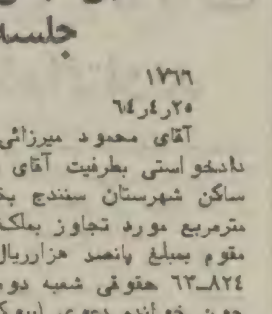 جلسه
۱۷۶۶
۲۵ر۴ر۶۴
آقای محمود میرزائی
دادخواستی بطرفیت آقای
ساکن شهرستان سنندج بخ
مترمربع مورد تجاوز بملک
مقوم بمبلغ پانصد هزارریال
۸۲۴ـ۶۳ حقوقی شعبه دوم
چون خوانده دعوی